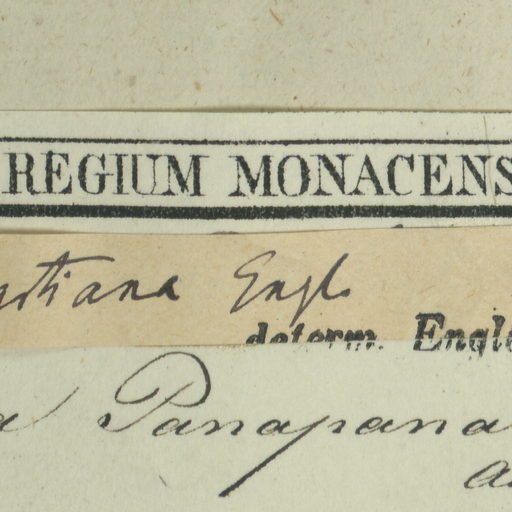 REGIUM MONACENS
stiana Engl.
determ. Engle
a Panapana
a